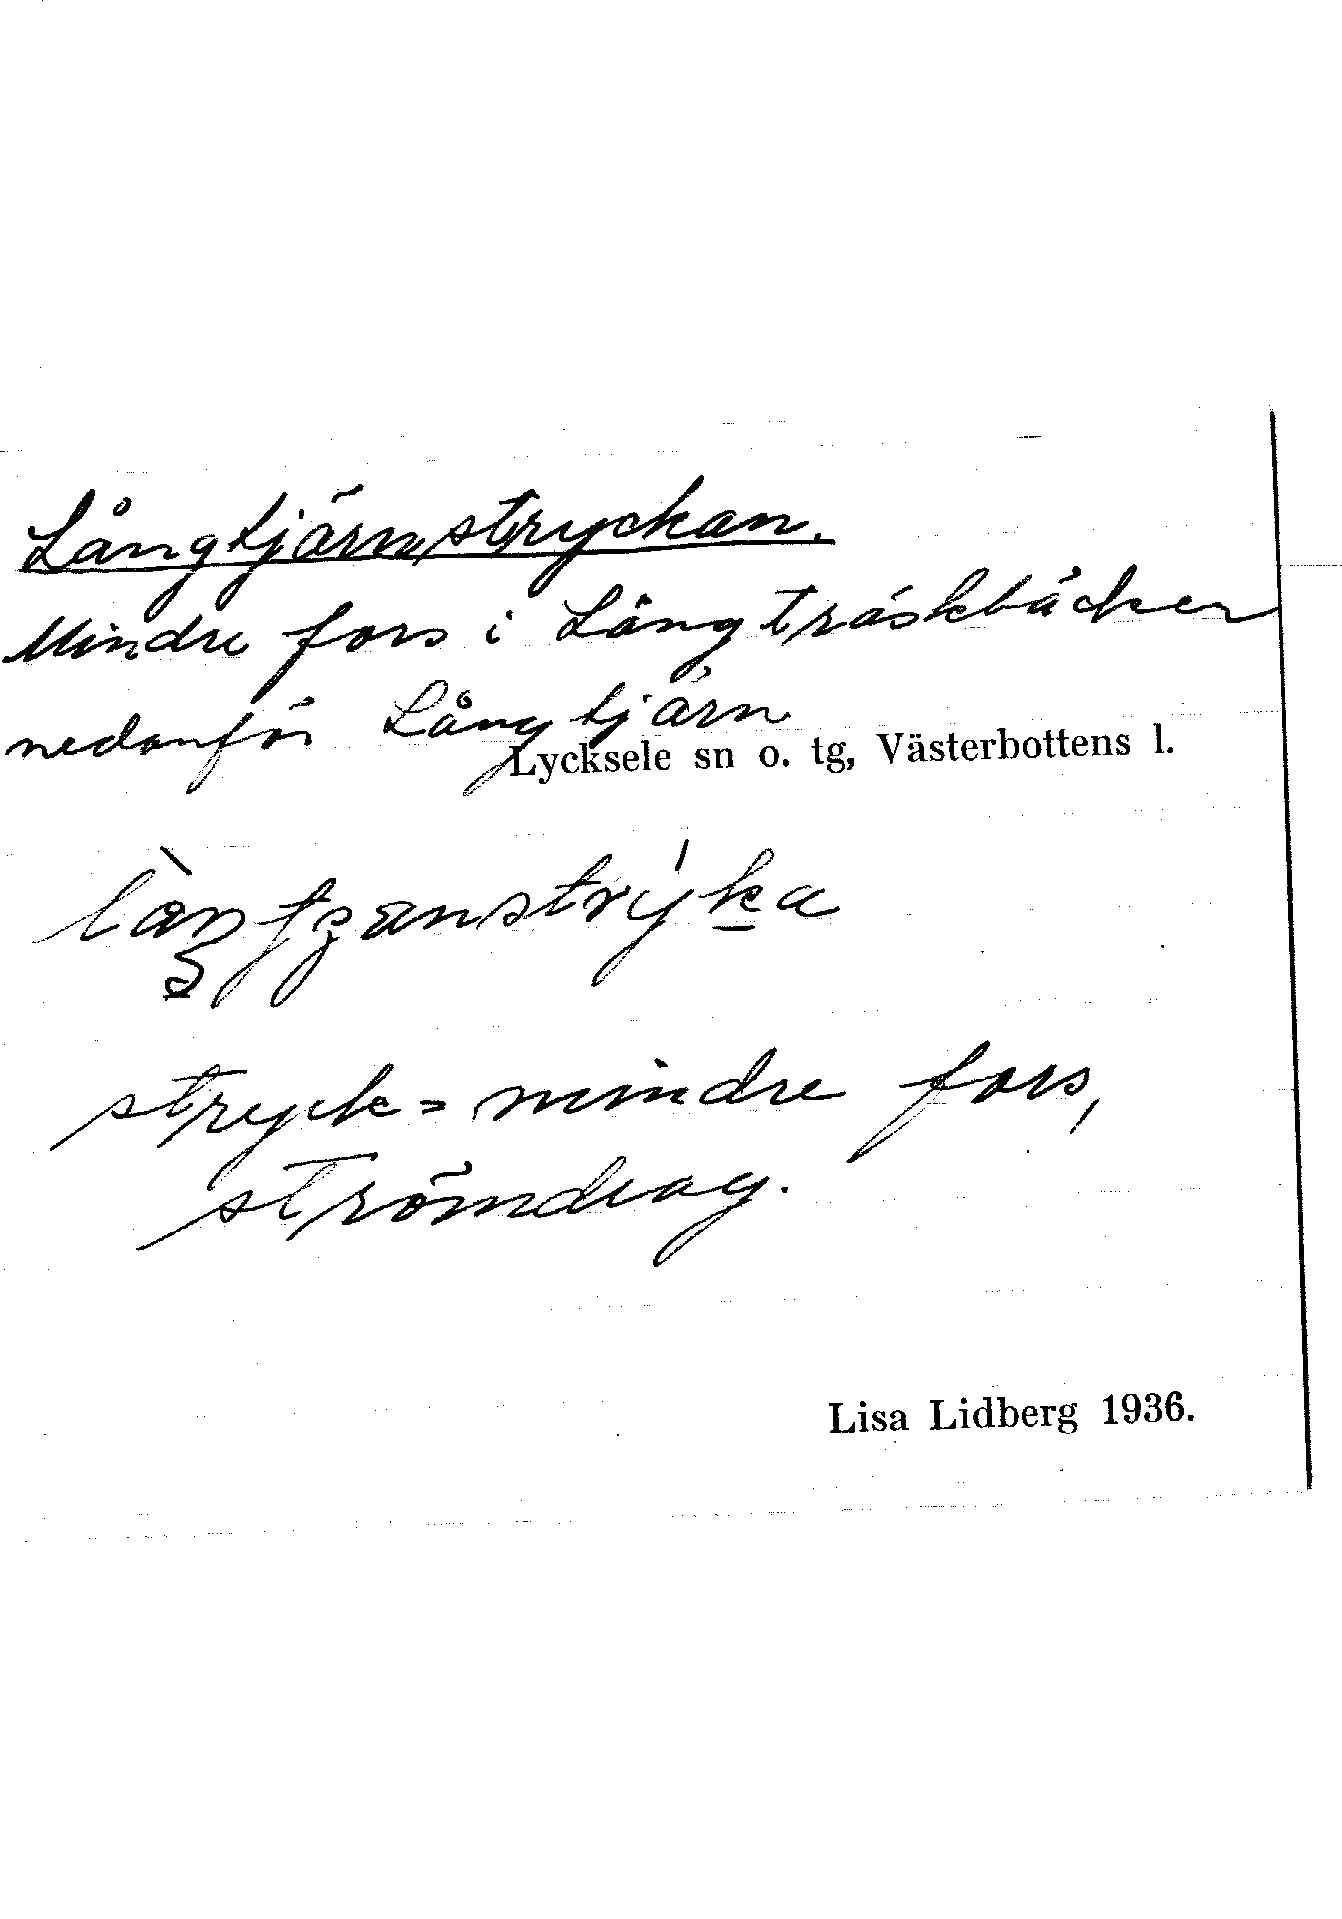 Långtjärnstryckan.
Mindre fors i Långträskbäcken
nedanför Långtjärn
Lycksele sn o. tg, Västerbottens l.
stryck = mindre fors,
strömdrag.
Lisa Lidberg 1936.